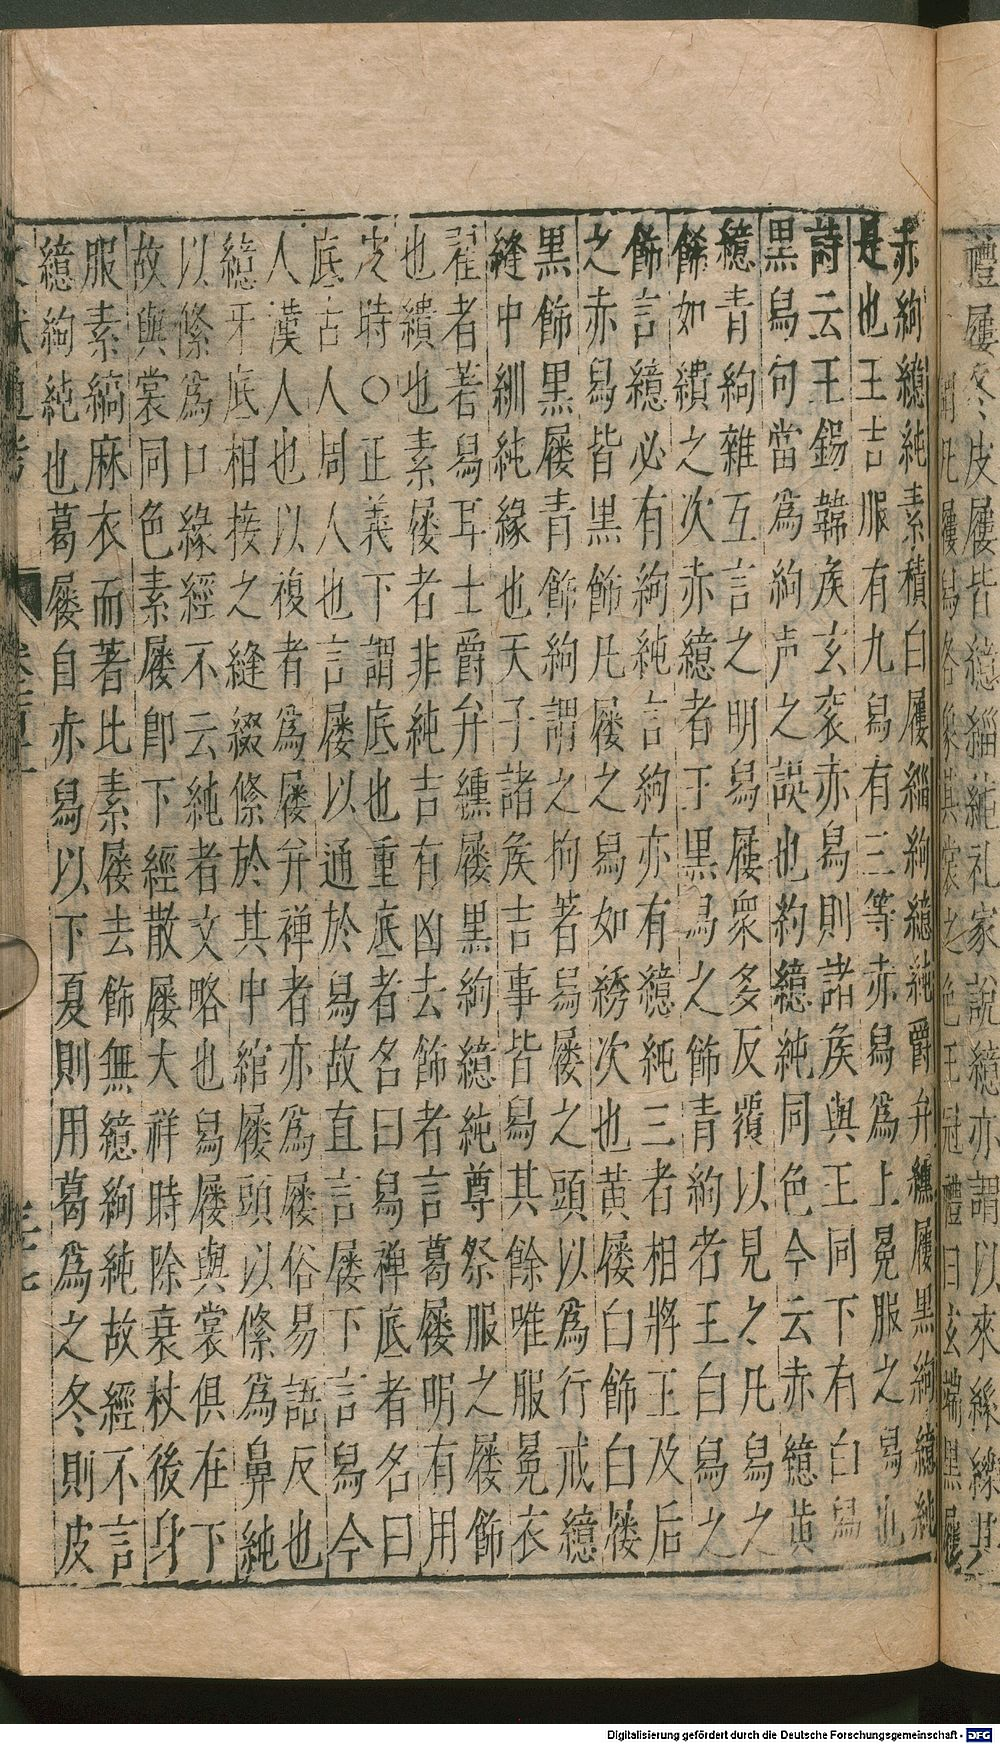 禮屨冬皮屨皆繶緇純礼家說繶亦謂以來
凡屨舄各象其裳之色王冠禮曰玄端黑屨
赤絇繶純素積白屨緇絇繶純爵弁纁屨黒絇繶純
是也王吉服有九舄有三等赤舄爲上冕服之舄也
詩云王錫韓矦玄衮赤舄則諸矦與王同下有白舄
黒舄句當爲絇声之誤也約繶純同色今云赤繶黄
繶青絇雜互言之明舄屨衆多反覆以見之凡舄之
餙如繢之次赤繶者于黒舄之飾青絇者王白舄之
餙言繶必有絇純言絇亦有繶純三者相將王及后
之赤舄皆黒飾凡屨之舄如綉次也黃屨白飾白屨
黒飾黒屨青飾絇謂之拘著舄屨之頭以爲行戒繶
縫中紃純緣也天子諸矦吉事皆舄其餘唯服冕衣
翟者著舄耳士爵弁纁屨黒絇繶純尊祭服之屨飾
也繢也素屨者非純吉有凶去飾者言葛屨明有用
皮時○正義下謂底也重底者名曰舄禅底者名曰
底古人周人也言屨以通於舄故直言屨下言舄今
人漢人也以複者爲屨弁禅者亦爲屨俗易語反也
繶牙底相接之縫綴絛於其中綰屨頭以絛爲鼻純
以絛爲口緣經不云純者文略也舄屨與裳俱在下
故與裳同色素屨即下經散屨大祥時除衰杖後身
服素縞麻衣而著比素屨去飾無繶絇純故經不言
繶絇純也葛屨自亦舄以下夏則用葛爲之冬則皮
通考
Digitalisierung gefördert durch die Deutsche Forschungsgemeinschaft - DFG